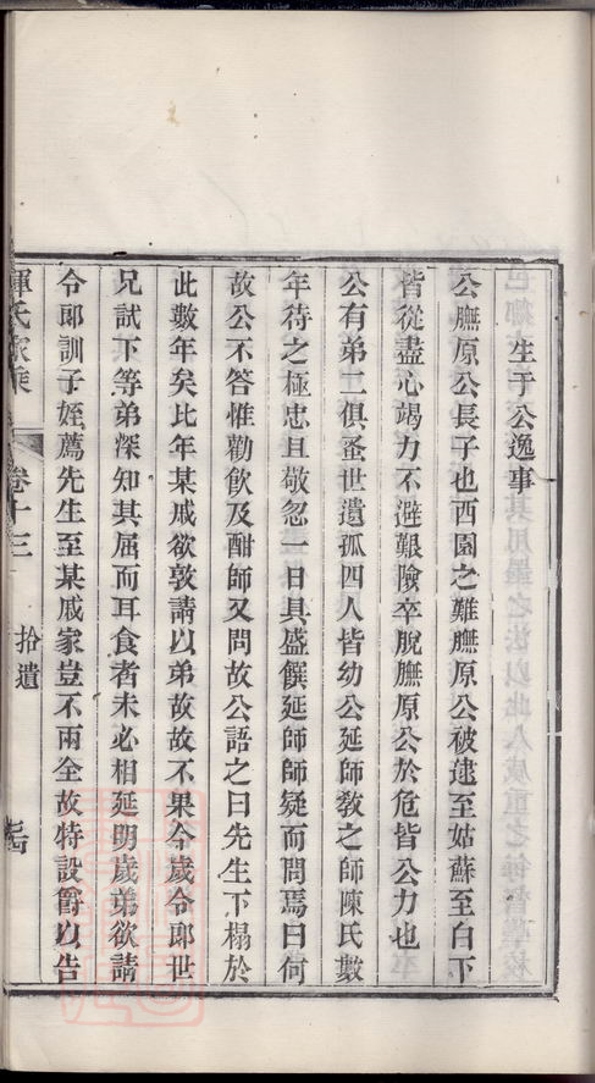 生于公逸事
公膴原公長子也西園之難膴原公被逮至姑蘇至白下
皆從盡心竭力不避艱險卒脫膴原公於危皆公力也
公有弟二俱蚤世遺孤四人皆幼公延師敎之師陳氏數
年待之極忠且敬忽一日具盛饌延師師疑而問焉曰何
故公不答惟勸飲及酣師又問故公語之曰先生下榻於
此數年矣比年某戚欲敦請以弟故故不果今歲令郎世
兄試下等弟深知其屈而耳食者未必相延明歲弟欲請
令郎訓子姪薦先生至某戚家豈不兩全故特設爵以告
惲氏家乘 卷十三 拾遺